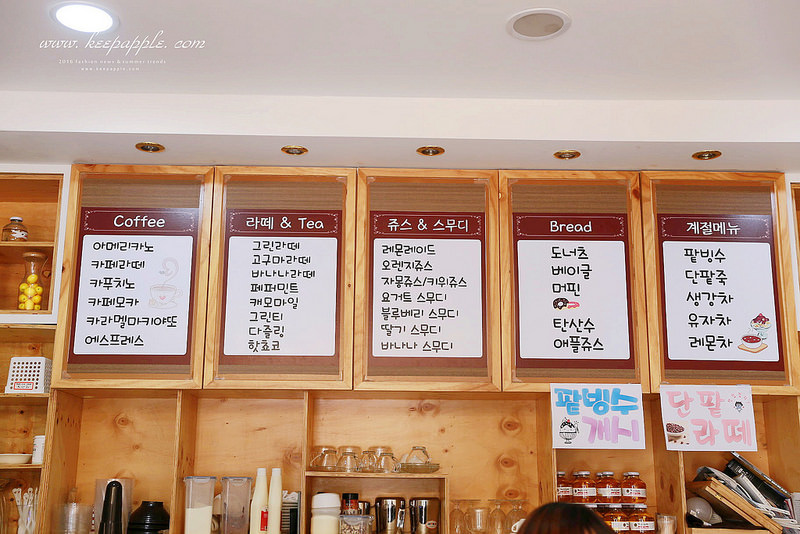 www.keepapple.com
2016 fashion news & summer trends
www.keepapple.com
Coffee
아메리카노
카페라떼
카푸치노
카페모카
카라멜마키야또
에스프레스
라떼 & Tea
그린라떼
고구마라떼
바나나라떼
페퍼민트
캐모마일
그린티
다즐링
핫쵸코
쥬스 & 스무디
레몬레이드
오렌지쥬스
자몽쥬스/키위쥬스
요거트 스무디
블루베리 스무디
딸기 스무디
바나나 스무디
Bread
도너츠
베이글
머핀
탄산수
애플쥬스
계절메뉴
팥빙수
단팥죽
생강차
유자차
레몬차
팥빙수
개시
단팥
라떼